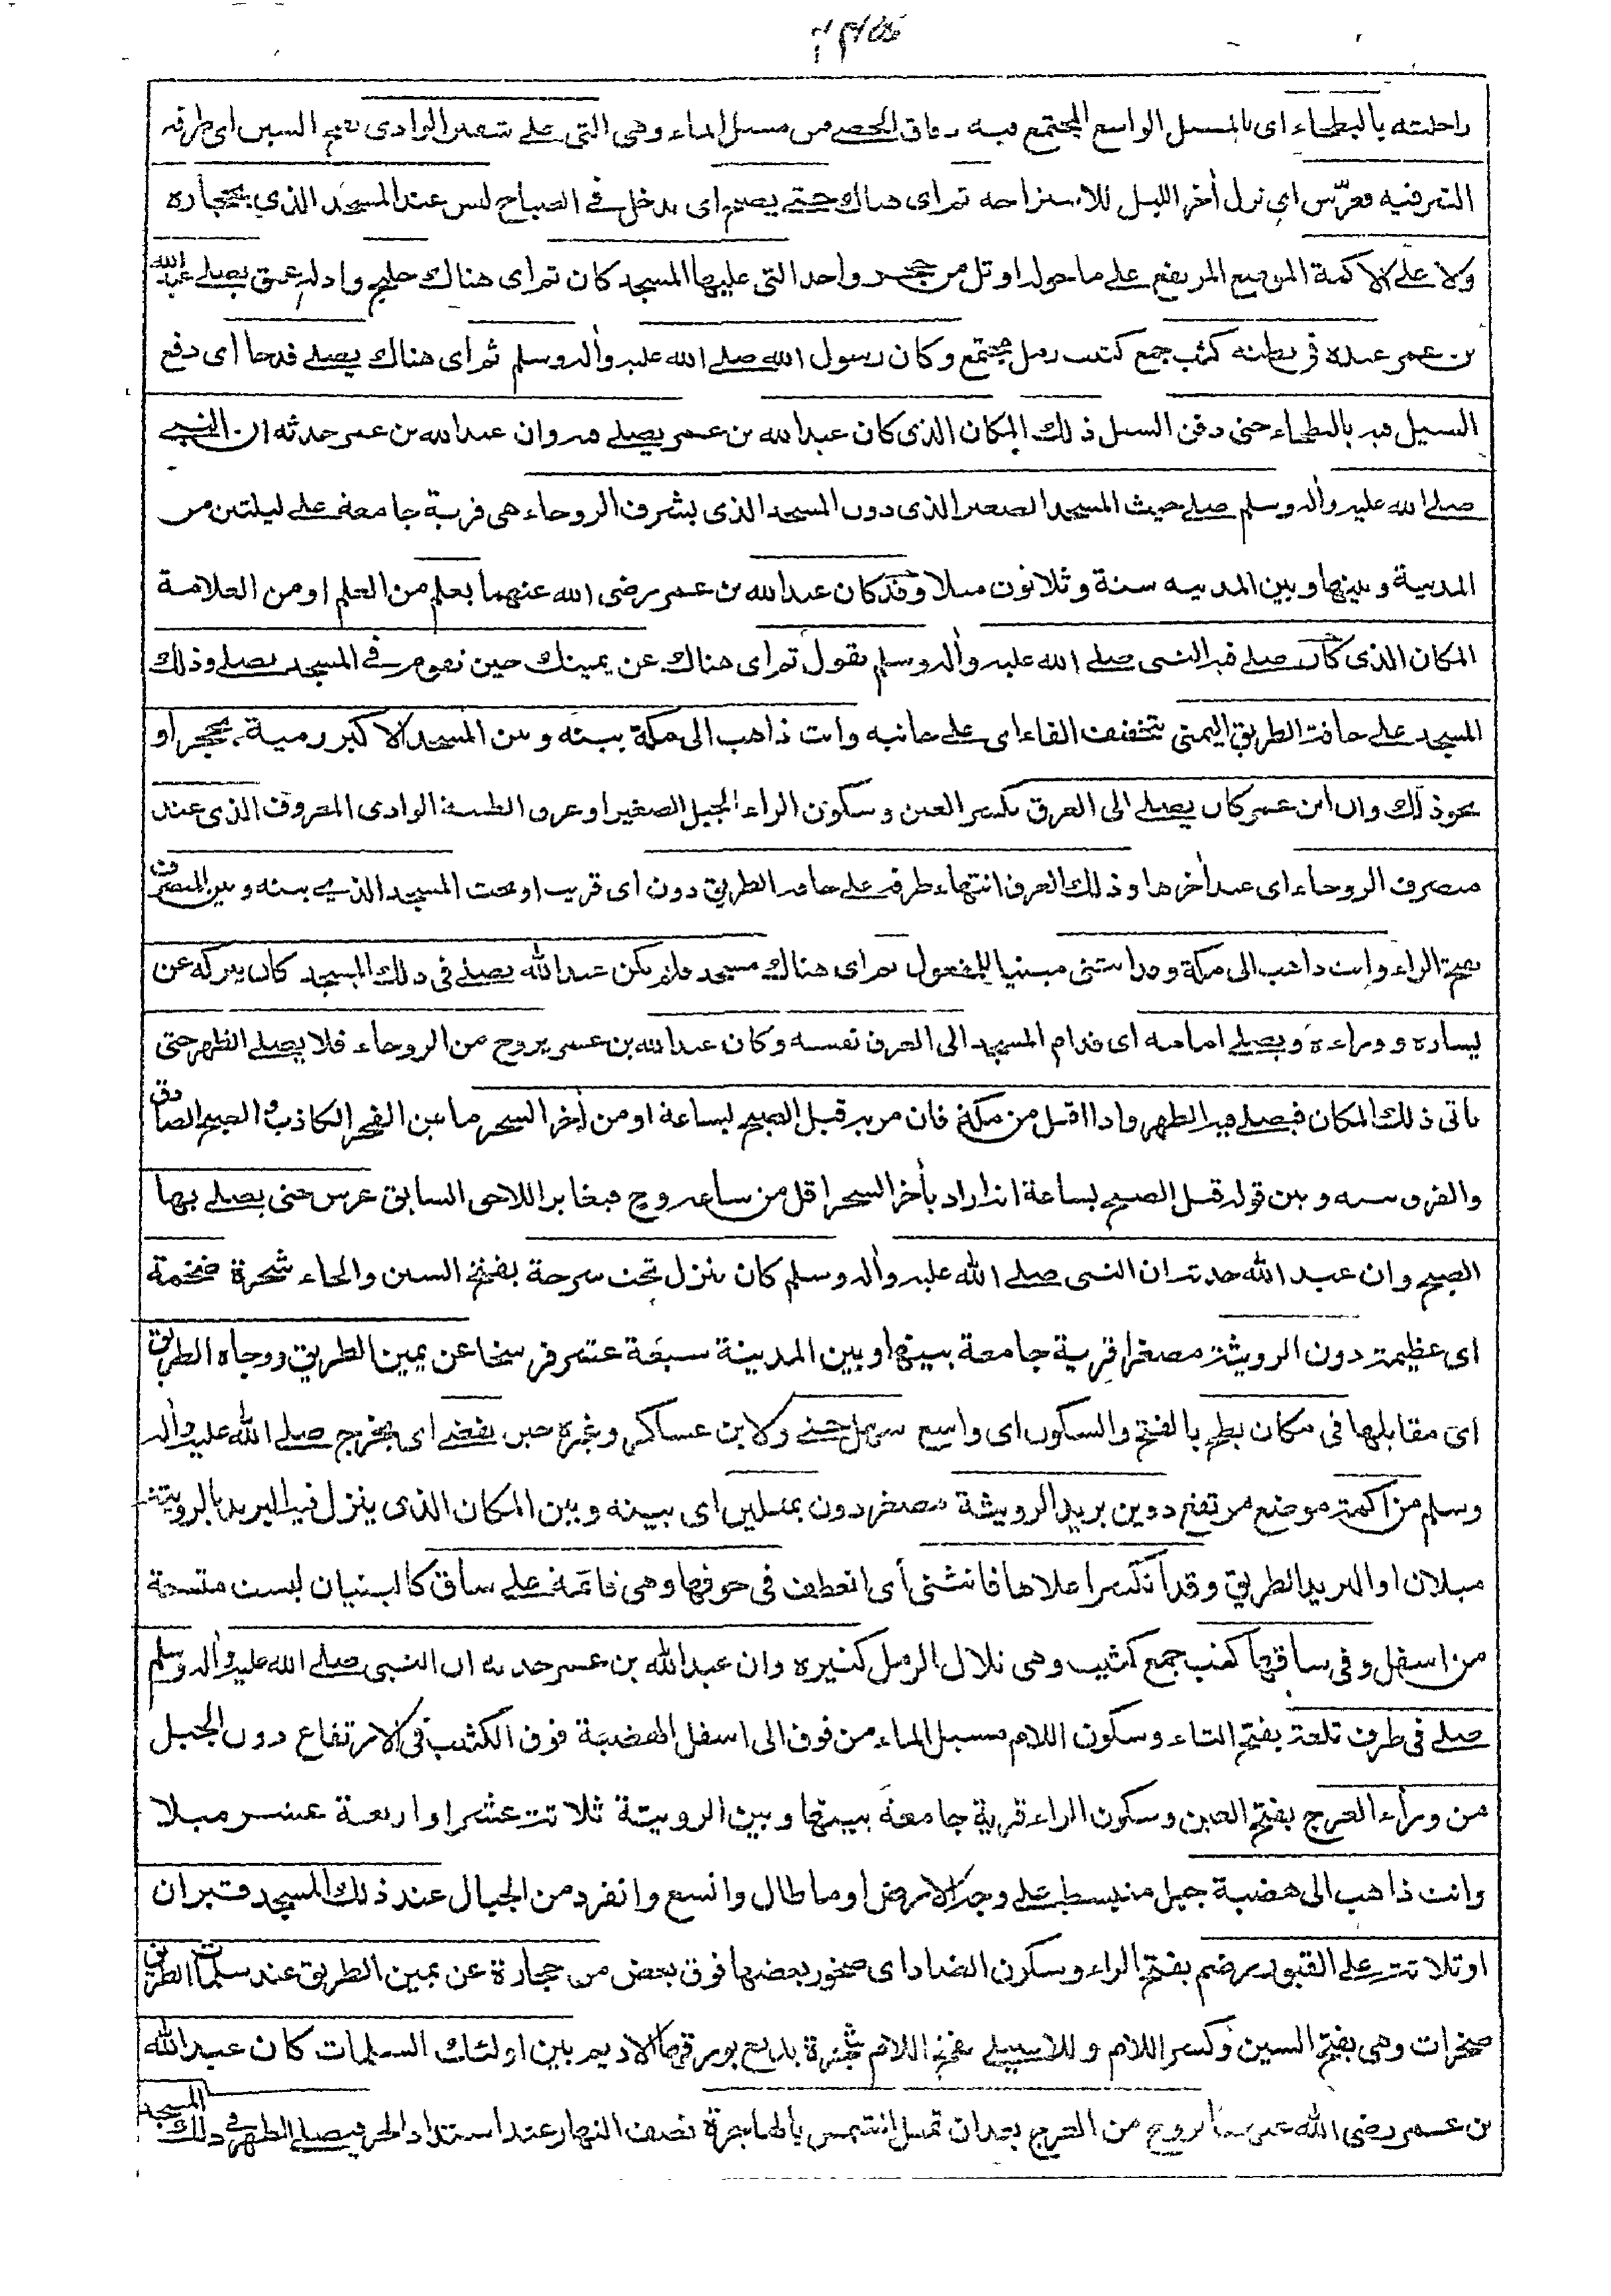 راحلته بالبطحاء اى بالمسيل الواسع المجتمع فيه دقاق الحصى من مسيل الماء وهى التى على شفير الوادى بفتح الشين اى طرفه
الشرقية فعرّس اى نزل أخر الليل للاستراحة ثم اى هناك حتى يصبح اى يدخل فى الصباح ليس عند المسجد الذي بحجارة
ولا على الاكمة الموضع المرتفع على ما حوله او تل من حجر واحد التى عليها المسجد كان ثم اى هناك خليج واد له عمق يصلى عبد الله
بن عمر عنده فى بطنه كثب جمع كثيب رمل مجتمع وكان رسول الله صلى الله عليه واله وسلم ثم اى هناك يصلى فدحا اى دفع
السيل فيه بالبطحاء حتى دفن السيل ذلك المكان الذى كان عبد الله بن عمر يصلى فيه وان عبد الله بن عمر حدثه ان النبى
صلى الله عليه واله وسلم صلى حيث المسجد الصغير الذى دون المسجد الذى بشرف الروحاء هى قرية جامعة على ليلتين من
المدينة وبينها وبين المدينة ستة وثلاثون ميلا وقد كان عبد الله بن عمر رضى الله عنهما يعلم من العلم او من العلامة
المكان الذى كان صلى فيه النبى صلى الله عليه واله وسلم يقول ثم اى هناك عن يمينك حين تقوم فى المسجد تصلى وذلك
المسجد على حافة الطريق اليمنى بتخفيف الفاء اى على جانبه وانت ذاهب الى مكة بينه وبين المسجد الاكبر رمية بحجر او
نحو ذلك وان ابن عمر كان يصلى الى العرق بكسر العين وسكون الراء الجبل الصغير او عرق الظبية الوادى المعروف الذى عند
منصرف الروحاء اى عند أخرها وذلك العرق انتهاء طرفه على حافة الطريق دون اى قريب او تحت المسجد الذى بينه وبين المنصرف
بفتح الراء وانت ذاهب الى مكة وقد ابتنى مبنيا للمفعول ثم اى هناك مسجد فلم يكن عبد الله يصلى فى ذلك المسجد كان يتركه عن
يساره ووراءه ويصلى امامه اى قدام المسجد الى العرق نفسه وكان عبد الله بن عمر يروح من الروحاء فلا يصلى الظهر حتى
ياتى ذلك المكان فيصلى فيه الظهر واذا اقبل من مكة فان مر به قبل الصبح بساعة او من أخر السحر ما بين الفجر الكاذب و الصبح الصادق
والفرق بينه وبين قوله قبل الصبح بساعة انه اراد بأخر السحر اقل من ساعة وح فيغاير اللاحق السابق عرس حتى يصلى بها
الصبح وان عبد الله حدثه ان النبى صلى الله عليه واله وسلم كان ينزل تحت سرحة بفتح السين والحاء شجرة ضخمة
اى عظيمة دون الرويثة مصغرا قرية جامعة بينها وبين المدينة سبعة عشر فرسخا عن يمين الطريق ووجاه الطريق
اى مقابلها فى مكان بطح بالفتح والسكون اى واسع سهل حتى ولابن عساكر وغيره حين يفضى اى يخرج صلى الله عليه واله
وسلم من اكمة موضع مرتفع دوين بريد الرويثة مصغر دون بميلين اى بينه وبين المكان الذى ينزل فيه البريد بالرويثة
ميلان او البريد الطريق وقد انكسر اعلاها فانثنى أى انعطف فى جوفها وهى قائمة على ساق كالبنيان ليست متسعة
من اسفل وفى ساقها كثب جمع كثيب وهى تلال الرمل كثيرة وان عبد الله بن عمر حدثه ان النبى صلى الله عليه واله وسلم
صلى فى طرف تلعة بفتح التاء وسكون اللام مسيل الماء من فوق الى اسفل الهضبة فوق الكثيب فى الارتفاع دون الجبل
من وراء العرج بفتح العين وسكون الراء قرية جامعة بينها وبين الرويثة ثلاثة عشر او اربعة عشر ميلا
وانت ذاهب الى هضبة جبل منبسط على وجه الارض او ما طال واتسع وانفرد من الجبال عند ذلك المسجد قبران
او ثلاثة على القبور رضم بفتح الراء وسكون الضاد اى صخور بعضها فوق بعض من حجارة عن يمين الطريق عند سلمات الطريق
صخرات وهى بفتح السين وكسر اللام وللاصيلى بفتح اللام شجرة يدبغ بورقها الاديم بين اولئك السلمات كان عبد الله
بن عمر رضى الله عنهما يروح من العرج بعد ان تميل الشمس بالهاجرة نصف النهار عند اشتداد الحر فيصلى الظهر فى ذلك المسجد